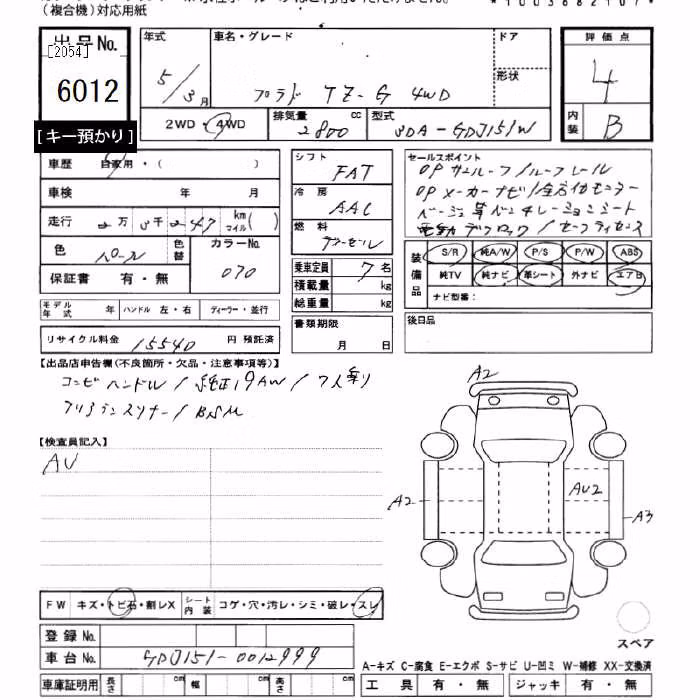 (複合機)対応用紙
*1003682107*
出品No.
[2054]
6012
[キー預かり]
年式
5/3月
車名・グレード
プラド TZ-G 4WD
ドア
形状
評価点
4
内装
B
2WD・4WD
排気量
2800 cc
型式
3DA-GDJ151W
車歴
自家用・( )
車検 年 月
走行
2万5千247 km マイル( )
色
パール
色替
カラーNo.
070
保証書 有・無
モデル年式 年
ハンドル 左・右
ディーラー・並行
リサイクル料金 15540 円 預託済
シフト
FAT
冷房
AAC
燃料
ディーゼル
乗車定員 7名
積載量 kg
総重量 kg
書類期限
月 日
セールスポイント
OPサンルーフ/ルーフレール
OPメーカーナビ/全方位モニター
ベージュ革ベンチレーションシート
電動デフロック/セーフティセンス
装備品
S/R 純A/W P/S P/W ABS
純TV 純ナビ 革シート 外ナビ エアB
ナビ型番:
後日品
【出品店申告欄(不良箇所・欠品・注意事項等)】
コンビハンドル/純正19AW/7人乗り
クリアランスソナー/BSM
【検査員記入】
AV
A2
A2
AU2
A3
スペア
FW キズ・トビ石・割レX
シート内装 コゲ・穴・汚レ・シミ・破レ・スレ
登録No.
車台No. GDJ151-0012999
車庫証明用 長さ cm 幅 cm 高さ cm
A-キズ C-腐食 E-エクボ S-サビ U-凹ミ W-補修 XX-交換済
工具 有・無 ジャッキ 有・無